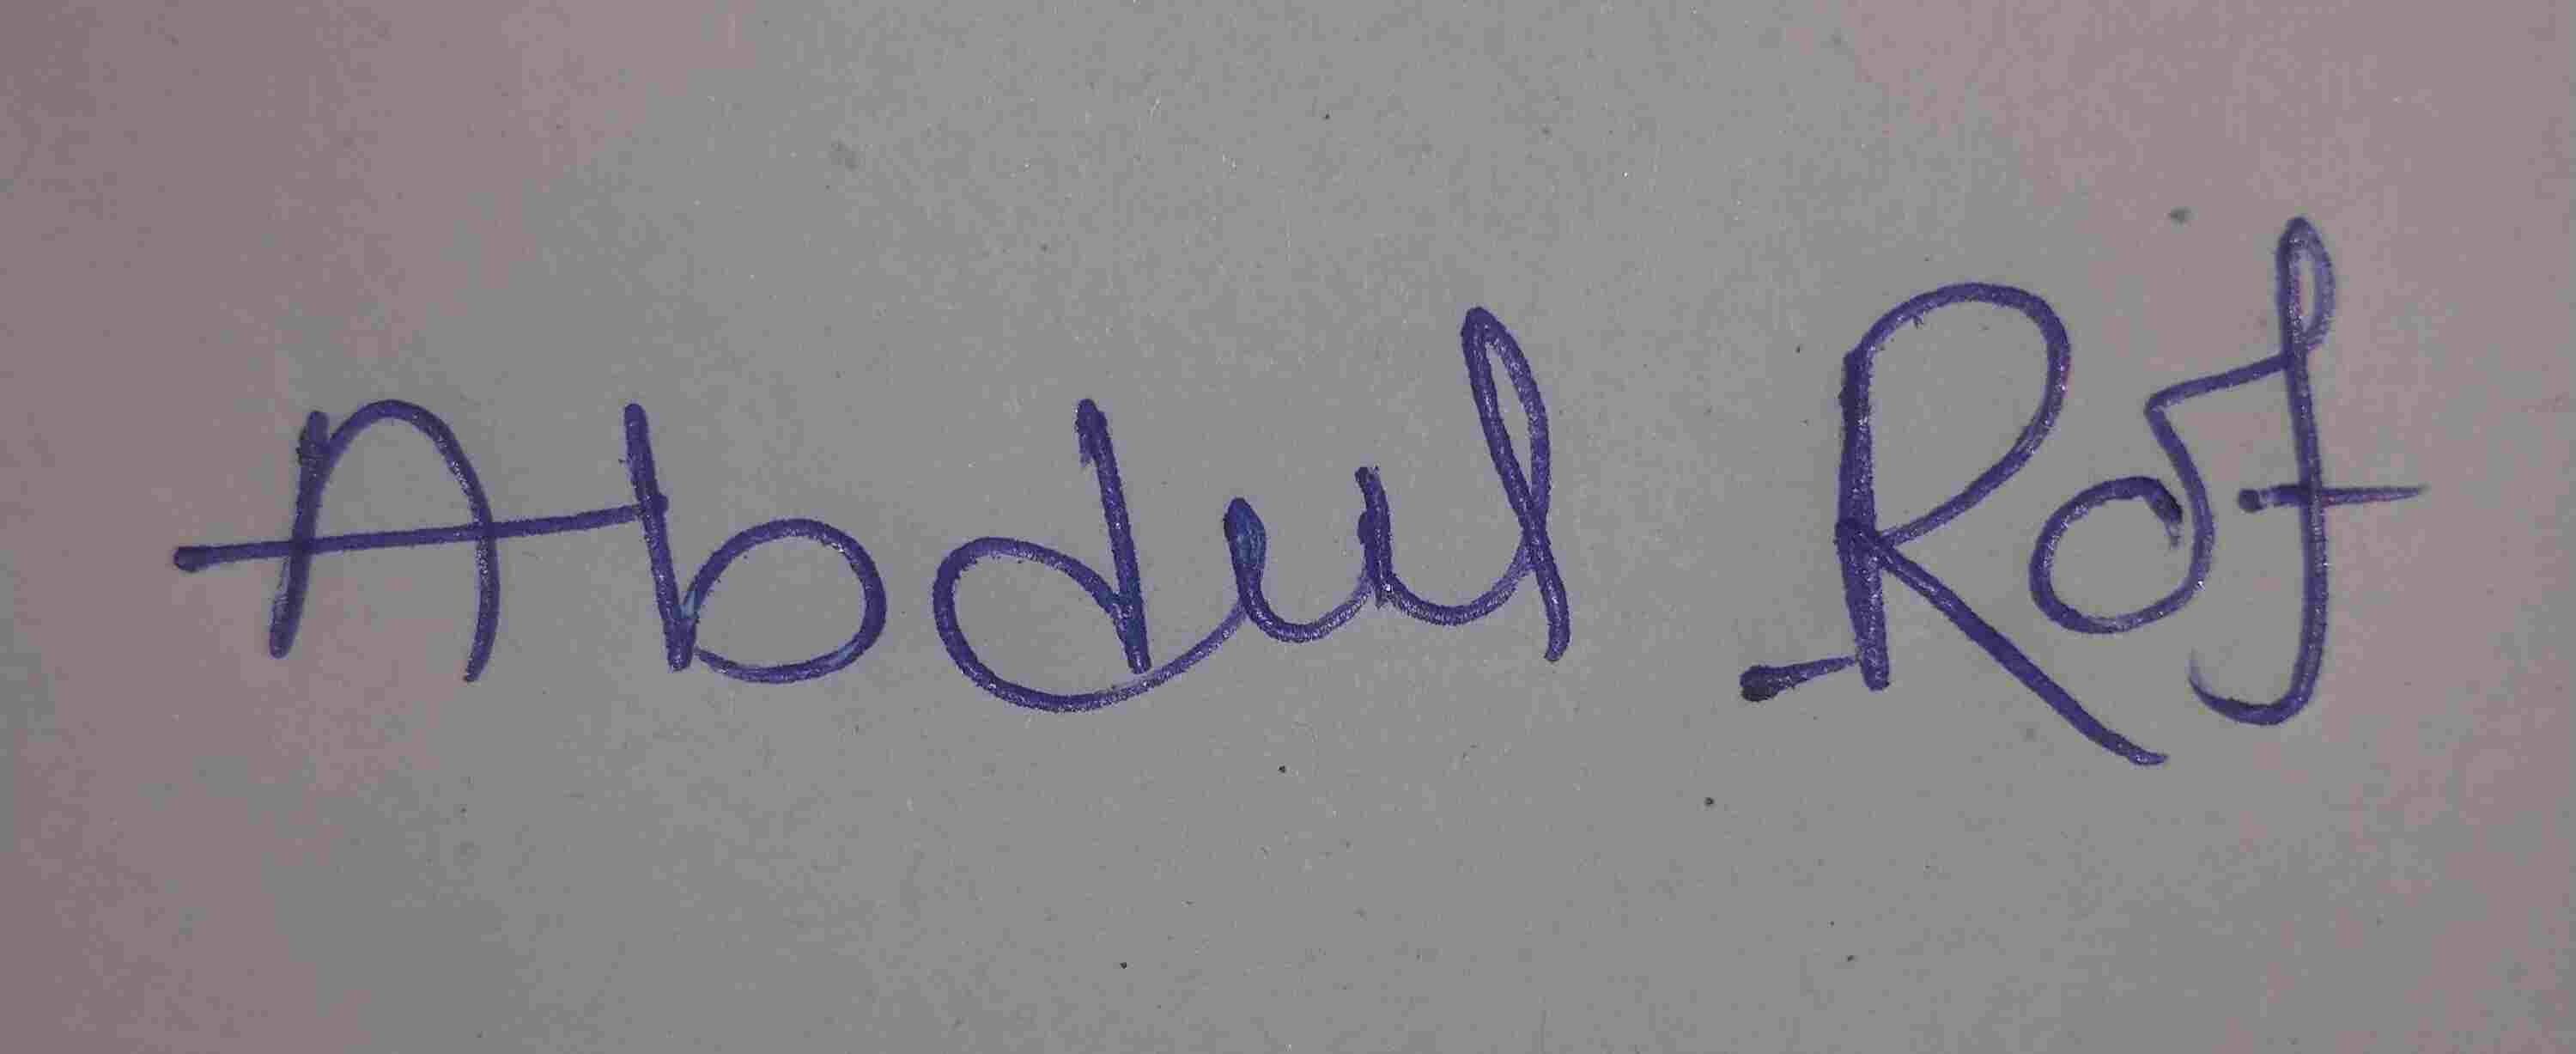 Abdul Rof